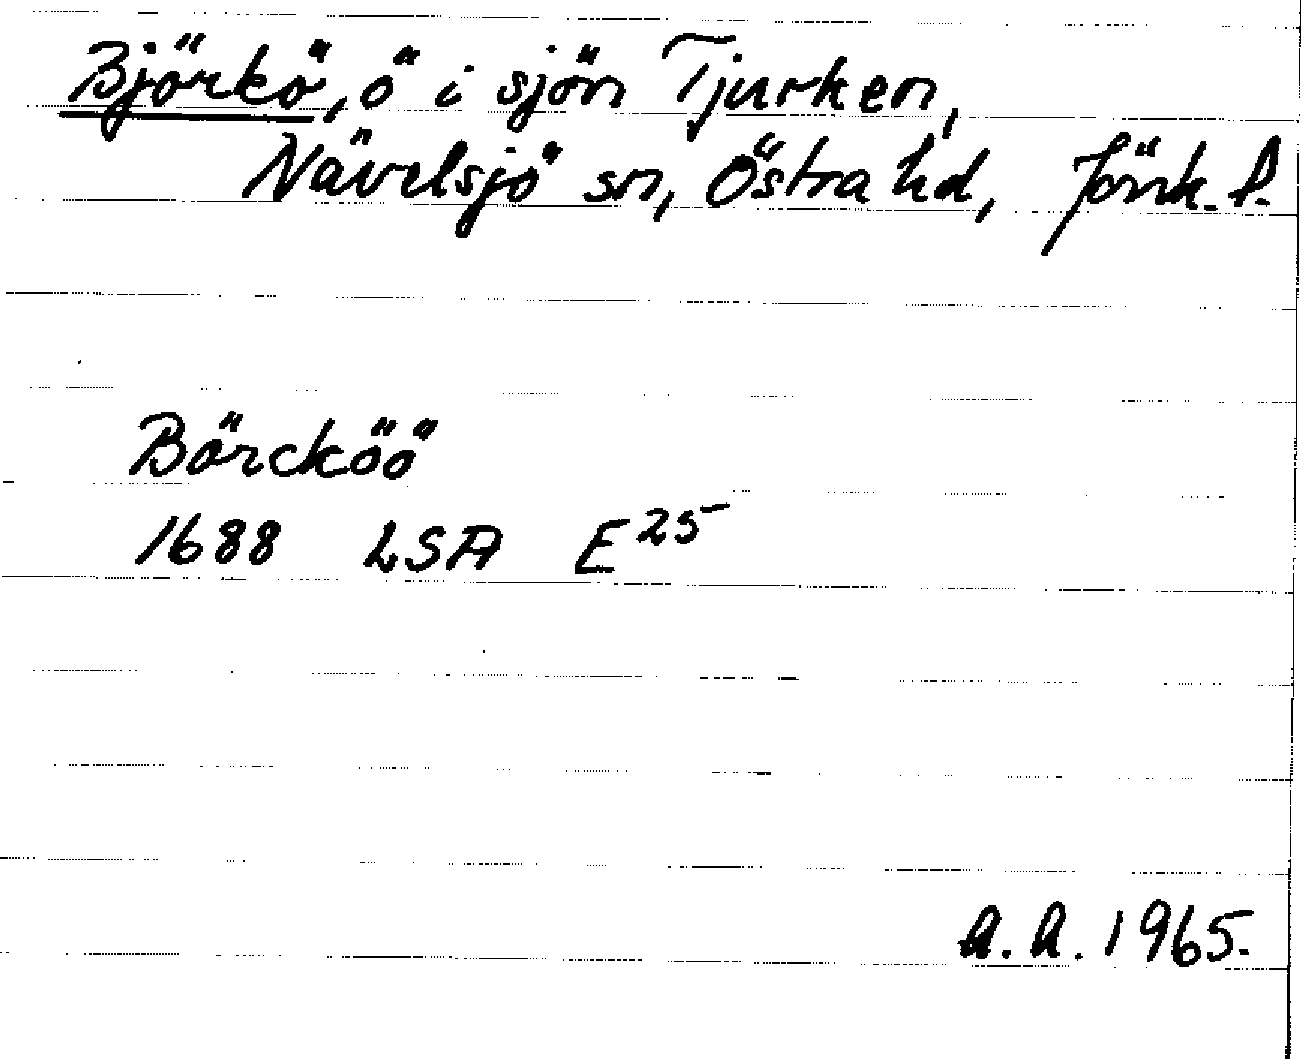 Björkö, ö i sjön Tjurken,
Nävelsjö sn, Östra hd, Jönk. l.
Börcköö
1688 LSA E25
A.A. 1965.